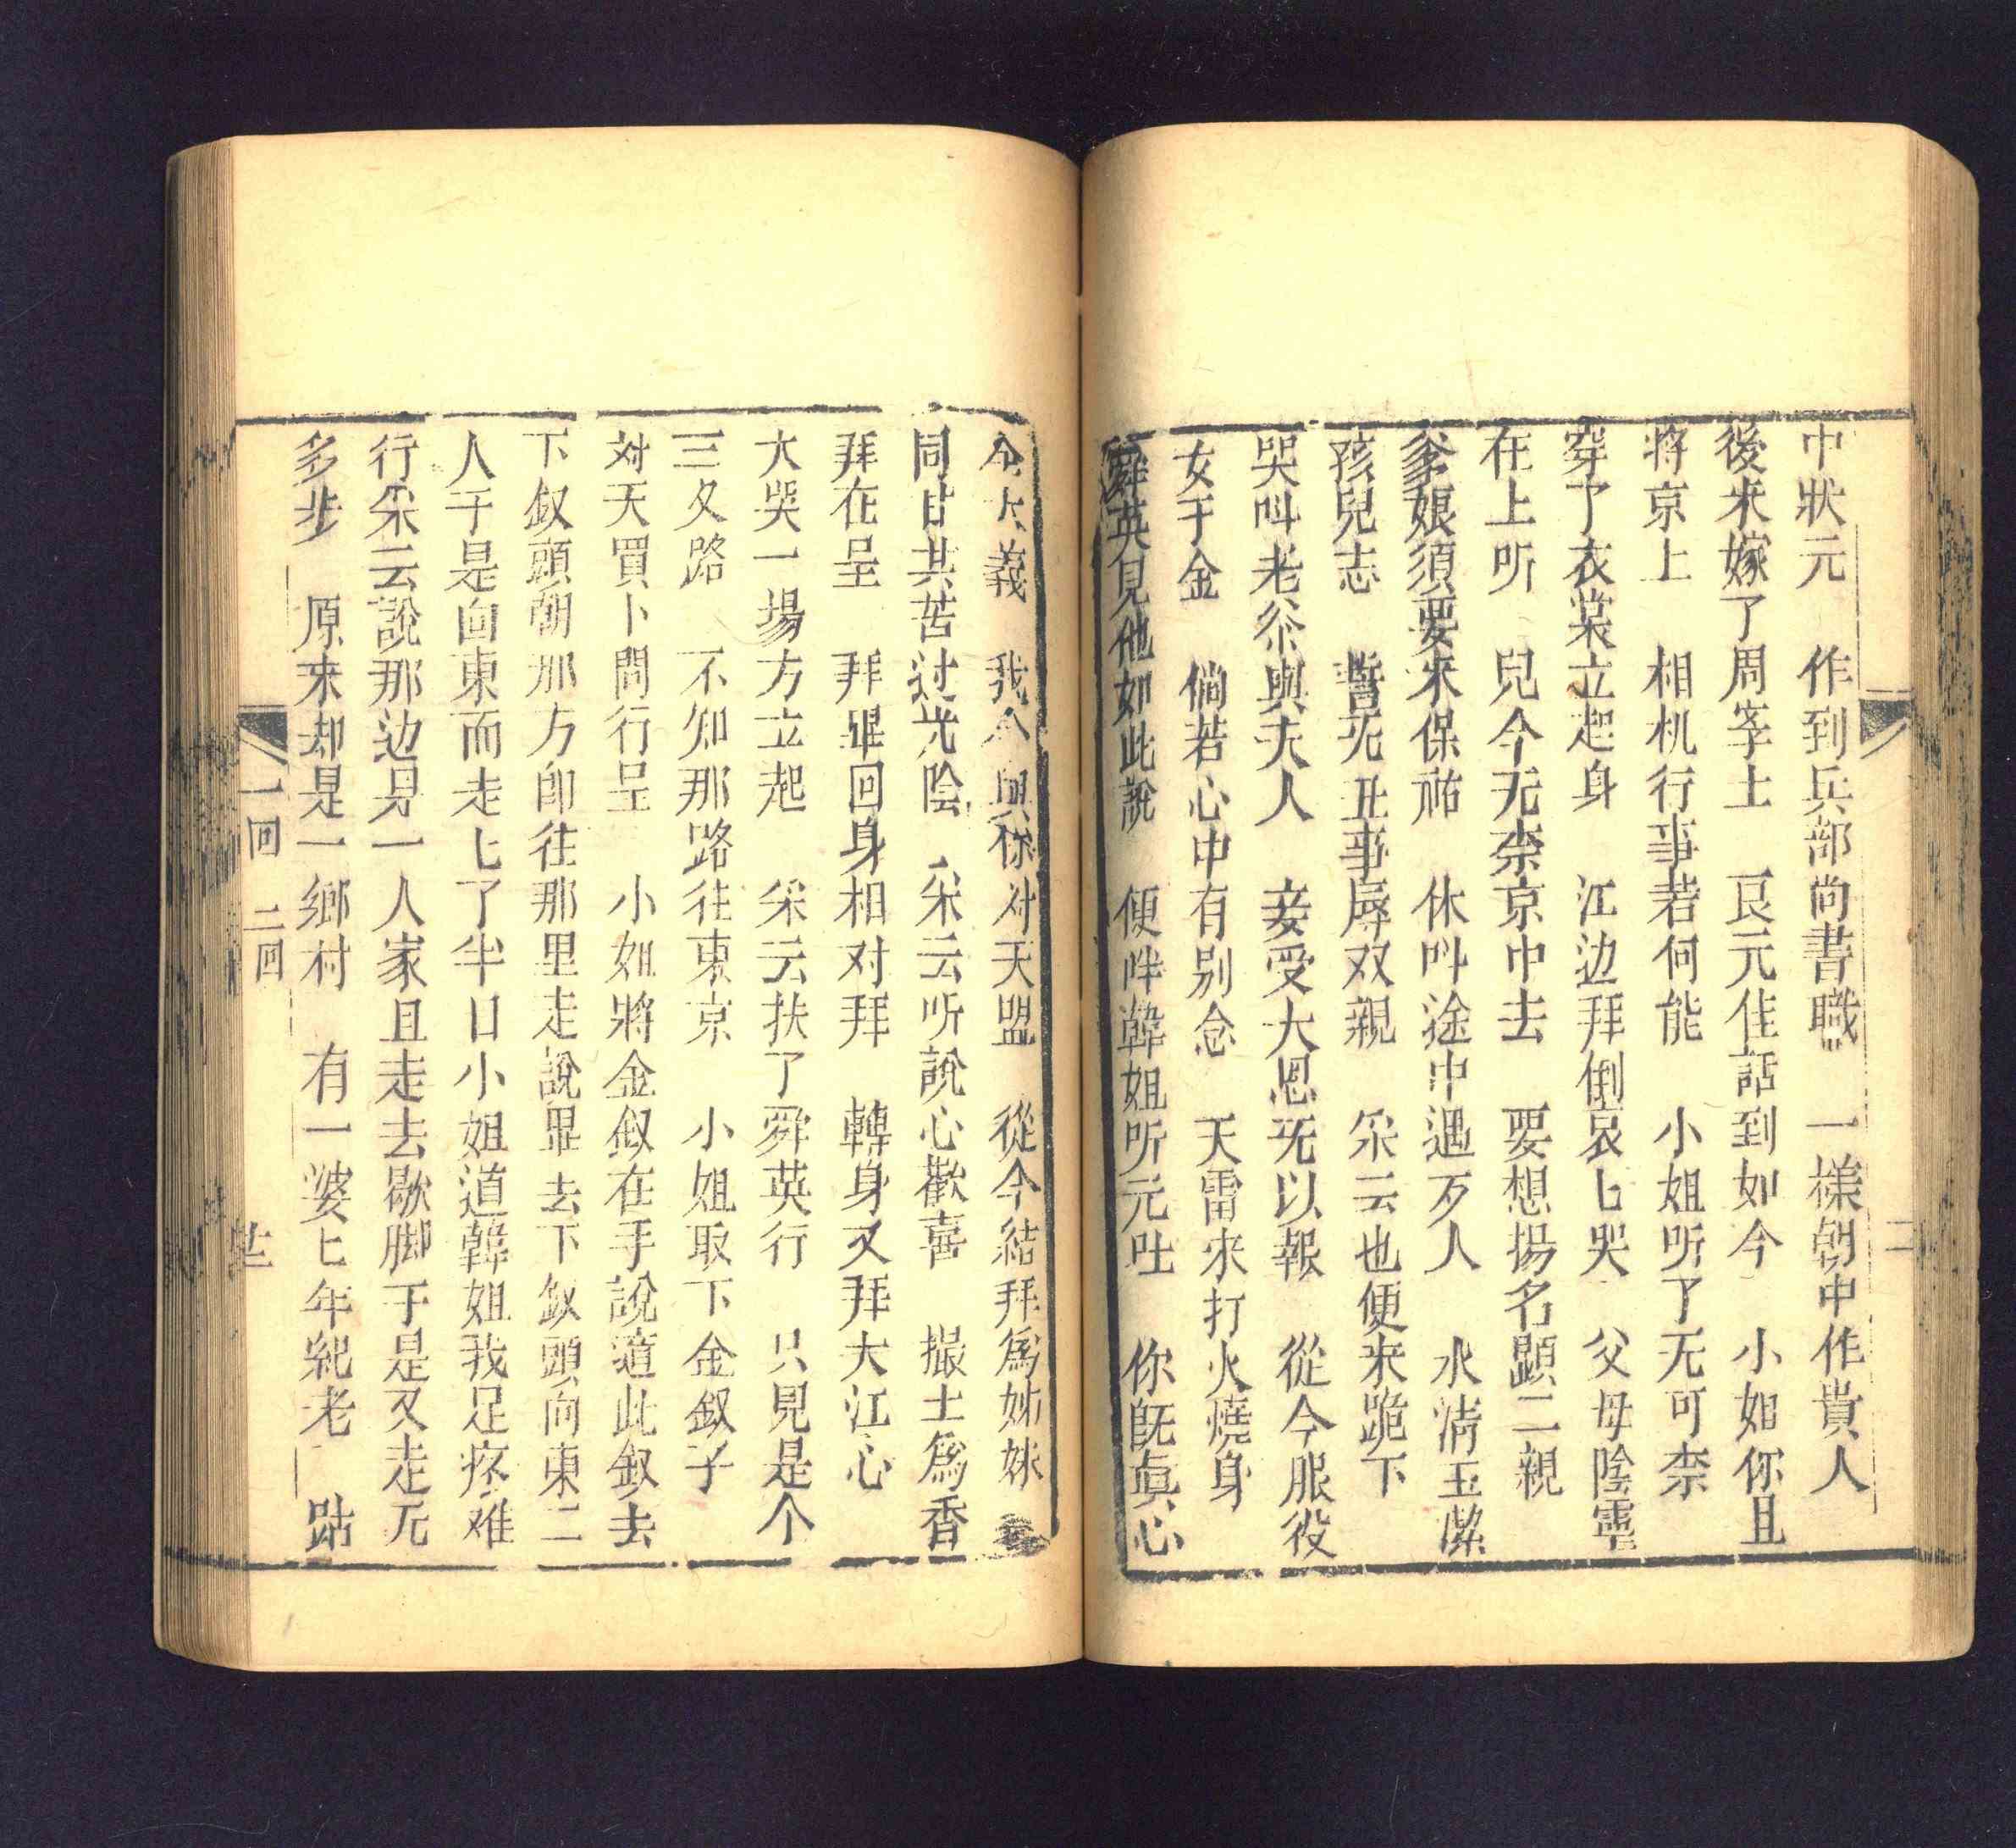 中狀元　作到兵部尚書職　一樣朝中作貴人
後來嫁了周宰士　艮元佳話到如今　小姐你且
将京上　相机行事若何能　小姐听了无可奈
穿了衣棠立起身　江边拜倒哀匕哭　父母陰靈
在上听　兒今无奈京中去　要想揚名顕二親
爹娘須要來保祐　休呌途中遇歹人　水清玉潔
孩兒志　誓无丑事辱双親　采云也便来跪下
哭呌老爷與夫人　妾受大恩无以報　從今服役
女千金　倘若心中有别念　天雷來打火燒身
舜英見他如此說　便呌韓姐听元吐　你既眞心
全大義　我今與你对天盟　從今結拜爲姊妹
同甘共苦过光陰　采云听說心歡喜　撮土爲香
拜在呈　拜畢回身相对拜　轉身又拜大江心
大哭一場方立起　采云扶了舜英行　只見是个
三叉路　不知那路往東京　小姐取下金釵子
对天買卜問行呈　小姐將金釵在手說道此釵去
下釵頭朝那方卽往那里走說畢去下釵頭向東二
人于是向東而走匕了半日小姐道韓姐我足疼难
行采云說那边見一人家且走去歇脚于是又走无
多步　原来却是一鄉村　有一婆匕年紀老　跕
一回　二回